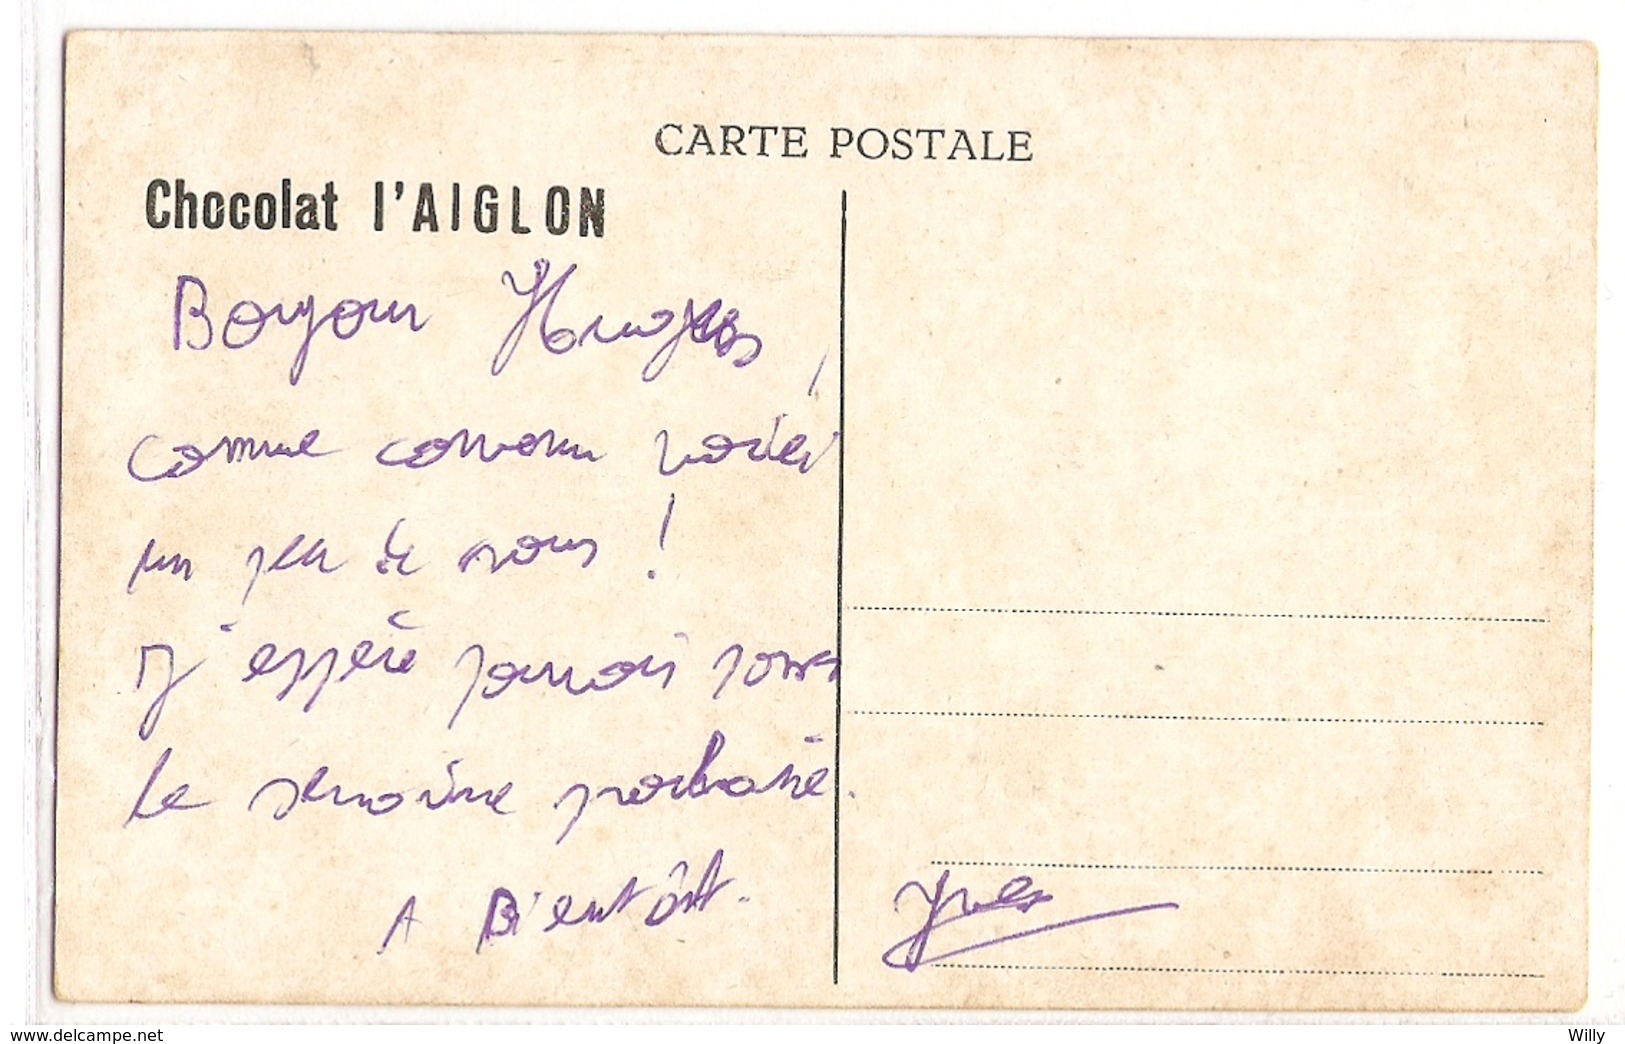 CARTE POSTALE
Chocolat l'AIGLON
Bonjour Hugues,
comme convenu voici
un peu de nous !
J'espère pouvoir passer
la semaine prochaine.
A Bientôt.
Yves
www.delcampe.net
Willy